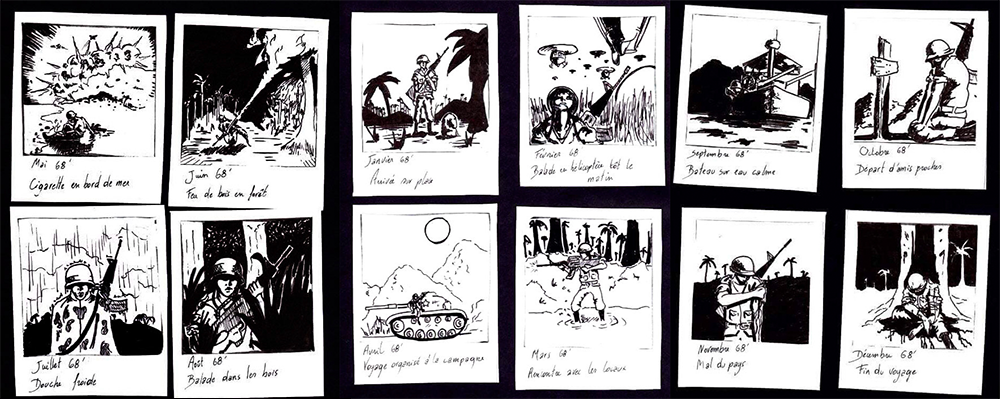 Mai 68'
Cigarette en bord de mer
Juin 68'
Feu de bois en forêt
Janvier 68'
Arrivée sur place
Février 68
Balade en hélicoptère tôt le
matin
Septembre 68'
Bateau sur eau calme
Octobre 68'
Départ d'amis proches
Juillet 68'
Douche froide
Août 68'
Balade dans les bois
Avril 68'
Voyage organisé à la campagne
Mars 68'
Rencontre avec les locaux
Novembre 68'
Mal du pays
Décembre 68'
Fin du voyage